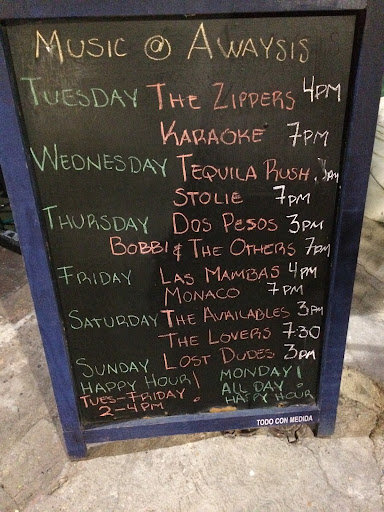 MUSIC @ AWAYSIS
TUESDAY THE ZIPPERS 4PM
KARAOKE 7PM
WEDNESDAY TEQUILA RUSH
STOLIE 7PM
THURSDAY DOS PESOS 3PM
BOBBI & THE OTHERS 7PM
FRIDAY LAS MAMBAS 4PM
MONACO 7PM
SATURDAY THE AVAILABLES 3PM
THE LOVERS 7:30
SUNDAY LOST DUDES 3PM
HAPPY HOUR! MONDAY!
TUES-FRIDAY ALL DAY
2-4PM. HAPPY HOUR
TODO CON MEDIDA